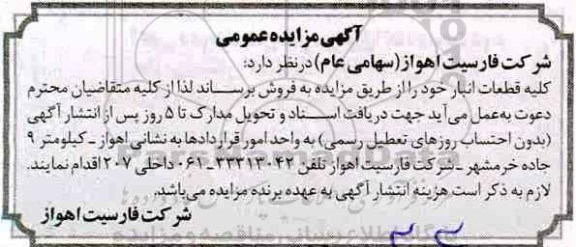 آگهی مزایده عمومی
شرکت فارسیت اهواز (سهامی عام) درنظر دارد:
کلیه قطعات انبار خود را از طریق مزایده به فروش برساند لذا از کلیه متقاضیان محترم
دعوت به‌عمل می‌آید جهت دریافت اسناد و تحویل مدارک تا ۵ روز پس از انتشار آگهی
(بدون احتساب روزهای تعطیل رسمی) به واحد امور قراردادها به نشانی اهواز ـ کیلومتر ۹
جاده خرمشهر ـ شرکت فارسیت اهواز تلفن ۳۳۲۱۳۰۴۲ ـ ۰۶۱ داخلی ۲۰۷ اقدام نمایند.
لازم به ذکر است هزینه انتشار آگهی به عهده برنده مزایده می‌باشد.
شرکت فارسیت اهواز